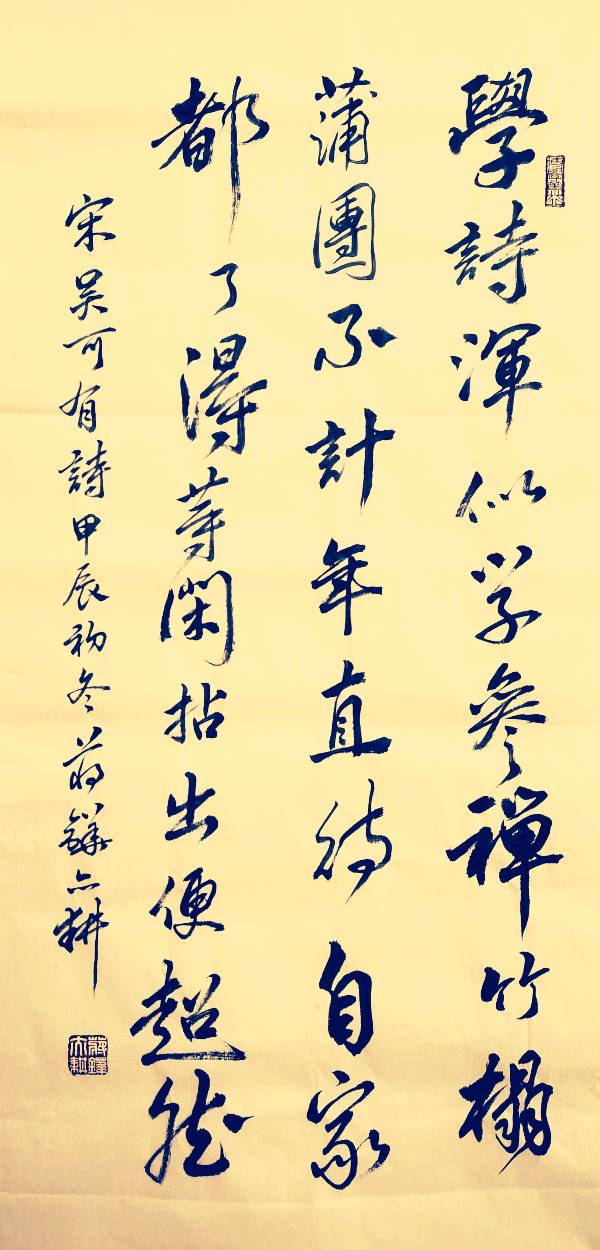 學詩渾似學參禪竹榻
蒲團不計年直待自家
都了得等閑拈出便超然
宋吴可有詩甲辰初冬蔣鐸亦耕